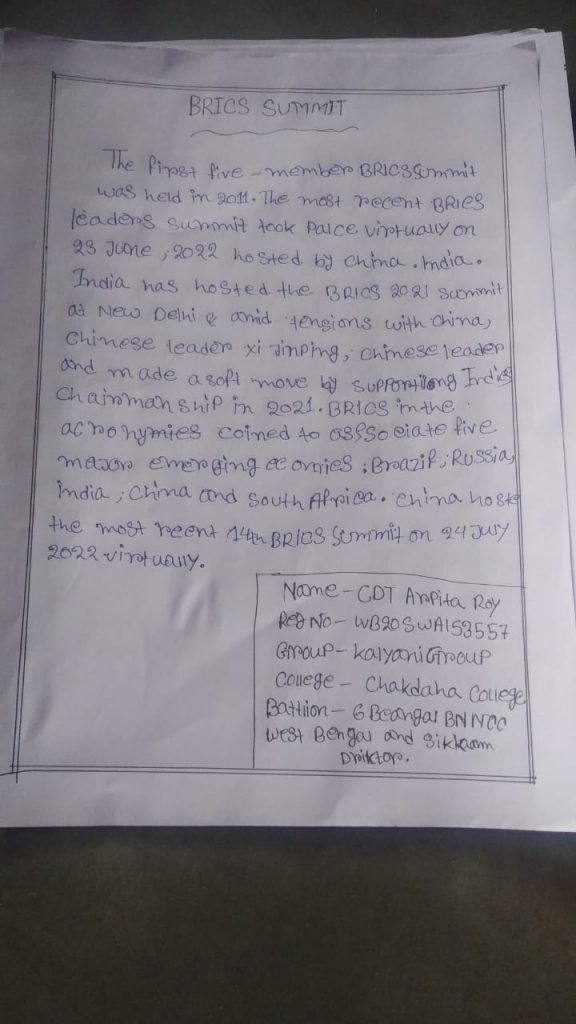 BRICS SUMMIT
The first five - member BRICS Summit
was held in 2011. The most recent BRIES
leaders summit took Palce virtually on
23 June, 2022 hosted by China. India.
India has hosted the BRICS 2021 summit
at New Delhi & amid tensions with China,
Chinese leader xi Jinping, Chinese leader
and made a soft move by supporting India
Chairmanship in 2021. BRICS in the
acronymies coined to associate five
major emerging ecomies, Brazil, Russia,
India, China and South Africa. China hoste
the most reent 14th BRICS Summit on 24 July
2022 virtually.
Name - CDT Arpita Roy
Reg No - WB20SWA153557
Group - Kalyani Group
College - Chakdaha College
Battlion - 6 Beangal BN NCC
West Bengal and Sikkaam